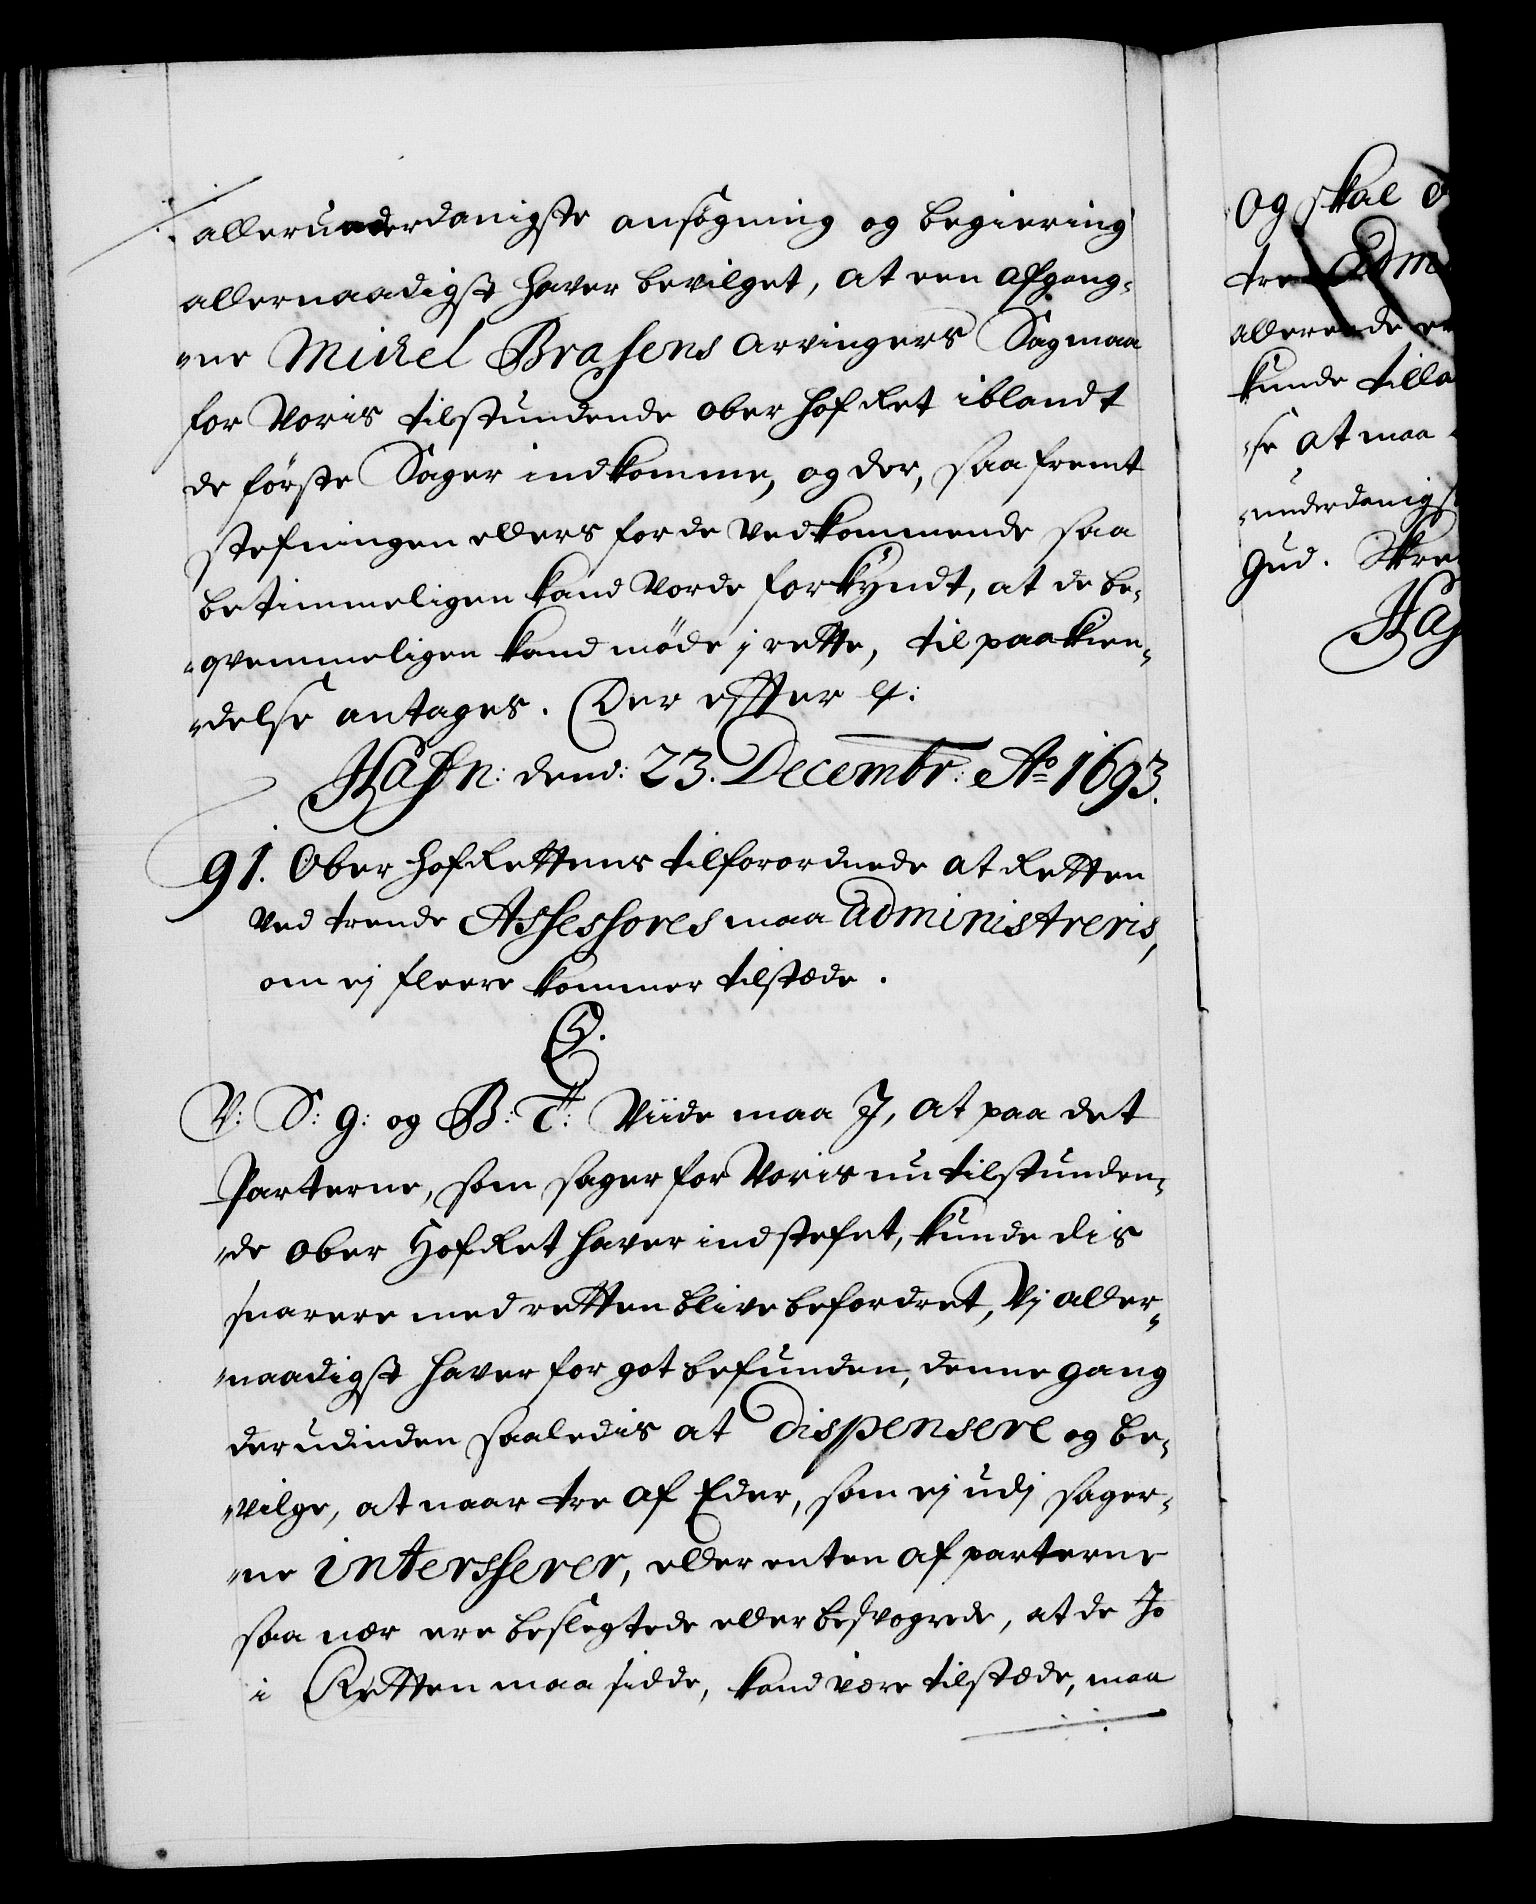 allerunderdanigste ansøgning og begiering
allernaadigst haver bevilget, at een afgang-
ne Mickel Brasens arvingers Sag maa
for Voris tilstundende ober hof Ret iblandt
de förste Sager indkomme, og der, saafremt
stefningen ellers for de vedkommende saa
betimmeligen kand vorde forkyndt, at de be-
qvemmeligen kand møde j rette, til paakien-
delse antages. Der efter &:
Hafn: dend: 23. Decembr: Ao 1693.
91. Ober hofRettens tilforordnede at Retten
ved trende Assessores maa administreris,
om ej fleere kommer tilstede.
C5.
V: S: g: og B: T: Viide maa J, at paa det
Parterne, som sager for Voris nu tilstunden-
de ober HofRet haver indstefnt, kunde dis
snarere med retten blive befordret, Vj aller-
naadigst haver for got befunden, denne gang
derudinden saaledis at dispensere og be-
vilge, at naar tre af Eder, som ej udj sager-
ne intersserer, eller enten af parterne
saa nær ere beslegtede eller besvogrede, at de Jo
i Retten maa sidde, kand være tilstede, maa
og skal
tre Adm
allerede
kunde tilla
se at maa
underdanigs
Gud. Skre
Haf